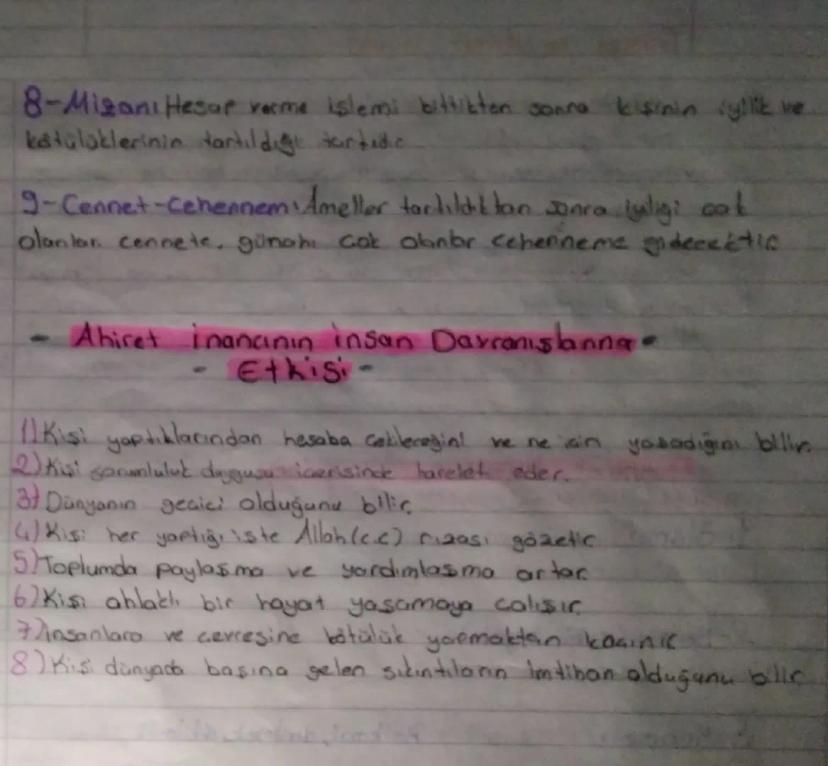 8-Mizan: Hesap verme işlemi bittikten sonra kişinin iyilik ve
kötülüklerinin tartıldığı tartıdır
9-Cennet-Cehennem: Ameller tartıldıktan sonra iyiliği çok
olanlar cennete, günahı çok olanlar cehenneme gidecektir
- Ahiret inancının insan Davranışlarına -
- Etkisi -
1) Kişi yaptıklarından hesaba çekileceğini ve ne için yaşadığını bilir.
2) Kişi sorumluluk duygusu içerisinde hareket eder.
3) Dünyanın geçici olduğunu bilir.
4) Kişi her yaptığı işte Allah (c.c) rızası gözetir
5) Toplumda paylaşma ve yardımlaşma artar
6) Kişi ahlaklı bir hayat yaşamaya çalışır.
7) insanlara ve çevresine kötülük yapmaktan kaçınır
8) Kişi dünyada başına gelen sıkıntıların imtihan olduğunu bilir